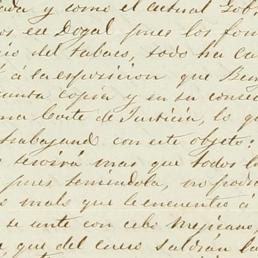 y como el actual Gob
en Dopal pues los fon
cio del tabaco, todo ha ca
á la esposicion que
unta copia y en su conse
ma Corte de Justicia, lo q
trabajand con este objeto:
reserva mas que todos l
pues temiendola, no pod
s mals que le encuentro á
se unte con cebo Mejicano,
que del caros saldran la